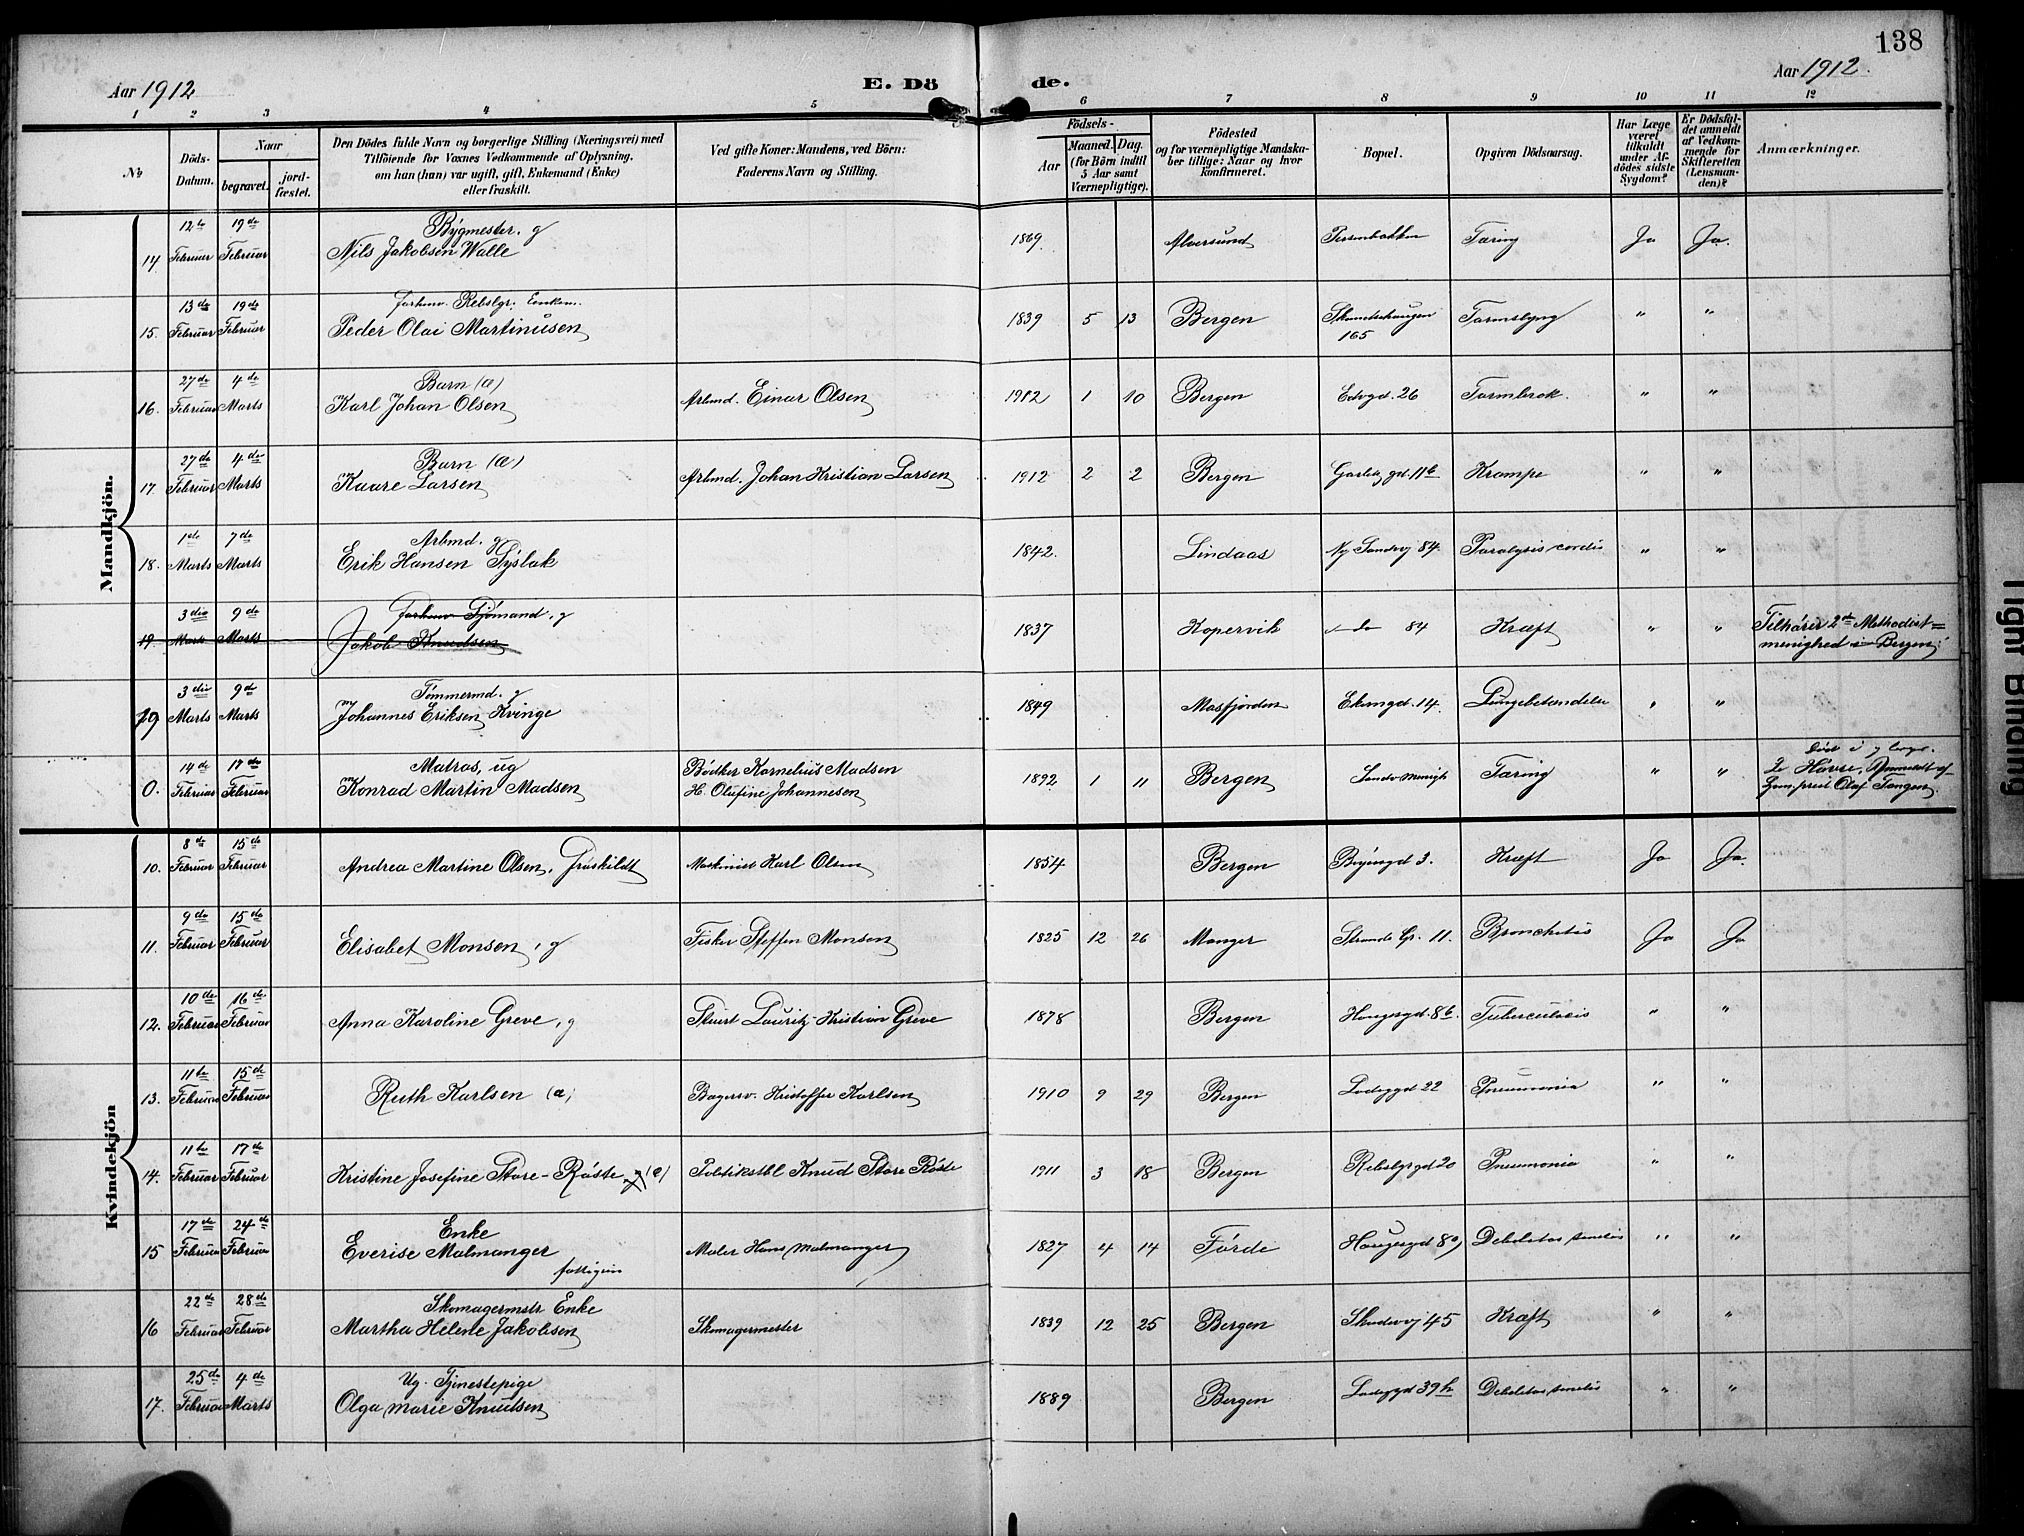 138
Aar 1912 E. Dö de. Aar 1912.
1 2 3 4 5 6 7 8 9 10 11 12
No Döds-Datum. Naar begravet. jord-fæstet. Den Dödes fulde Navn og borgerlige Stilling (Næringsvei) med Tilföiende for Voxnes Vedkommende af Oplysning, om han (hun) var ugift, gift, Enkemand (Enke) eller fraskilt. Ved gifte Koner: Mandens, ved Börn: Faderens Navn og Stilling. Födsels- Aar Maaned. Dag. (for Börn indtil 5 Aar samt Værnepligtige). Födested og for værnepligtige Mandskaber tillige: Naar og hvor konfirmeret. Bopæl. Opgiven Dödsaarsag. Har Læge været tilkaldt under Afdödes sidste Sygdom? Er Dödsfaldet anmeldt af Vedkommende for Skifteretten (Lensmanden)? Anmærkninger.
Mandkjön.
14 12te Februar 19de Februar Bygmester. g Nils Jakobsen Walle 1869 Alversund Tæring Ja Ja.
15. 13de Februar 19de Februar Forhenv. Rebslgr. Enkem. Peder Olai Martinusen 1839 5 13 Bergen 165 Tarmslyng " "
16. 27de Februar 4de Marts Barn (æ) Karl Johan Olsen Arbmd. Einar Olsen 1912 1 10 Bergen Edvgd. 26 Tarmbrok. " "
17. 27de Februar 4de Marts Barn (æ) Kaare Larsen Arbmd. Johan Kristian Larsen 1912 2 2 Bergen gd. 11b Krampe " "
18. 1ste Marts 7de Marts Arbmd. g Erik Hansen Syslak 1842. Lindaas Ny Sandvvj 84. Paralysis cordis " "
19. 3die Marts 9de Marts Forhenv Sjömand, g Jakob Knudssen 1837 Kopervik - do 84 Kræft " " Tilhörer 2den Methodist= menighed i Bergen.
19 3die Marts 9de Marts Tömmermd. g Johannes Eriksen Kvinge 1849 Masfjorden Ekengd. 14. Lungebetændelse " "
0. 14de Februar 17de Februar Matros, ug Konrad Martin Madsen Bödker Kornelius Madsen H. Olufine Johannesen 1892 1 11 Bergen Sandv Menigh Tæring " " Död i Le Havre, Anmeldt af Olaf Tangen.
Kvindekjön
10. 8de Februar 15de Februar Andrea Martine Olsen, Fraskildt Maskinist Karl Olsen 1854 Bergen Böiengd 3. Kræft Ja Ja.
11. 9de Februar 15de Februar Elisabet Monsen, g Fisker Steffen Monsen 1825 12 26 Manger Strands Gr. 11. Bronchitis Ja Ja
12. 10de Februar 16de Februar Anna Karoline Greve, g Stuert Lauritz Kristian Greve 1878 Bergen Haugegd. 8b. Tuberculosis " "
13. 11te Februar 15de Februar Ruth Karlsen (æ) Bagersv. Kristoffer Karlsen 1910 9 29 Bergen Ladeggd 22 Pneumonia " "
14. 11te Februar 17de Februar Kristine Josefine Store-Röste (e) Politikstbl Knud Store Röste 1911 3 18 Bergen Rebslgrgd 20 Pneumonia " "
15 17de Februar 24de Februar Enke Everise Malmanger fattigvæs Maler Hans Malmanger 1827 4 14 Förde Haugegd 8 Debilitas senilis " "
16 22de Februar 28de Februar Skomagermstr Enke Martha Helene Jakobsen Skomagermester 1839 12 25 Bergen Skudevvj 45 Kræft " "
17. 25de Februar 4de Marts Ug. Tjenestepige Olga Marie Knutsen 1889 Bergen Ladeggd 39b Debilitas senilis " "
Tight Binding